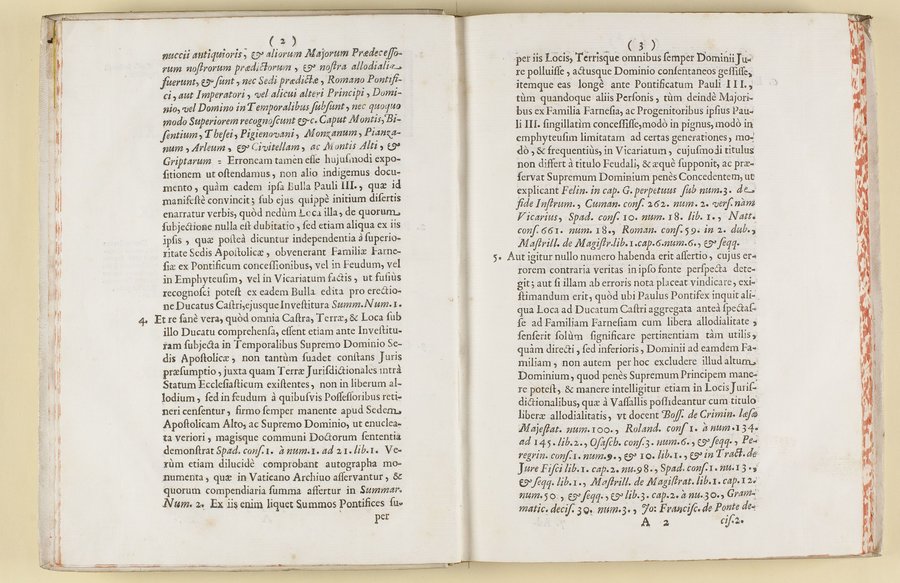 ( 2 )
nuccii antiquioris, & aliorum Majorum Prædecesso-
rum nostrorum prædictorum, & nostra allodialia
fuerunt, & sunt, nec Sedi prædictæ, Romano Pontifi-
ci, aut Imperatori, vel alicui alteri Principi, Domi-
nio, vel Domino in Temporalibus subsunt, nec quoquo
modo Superiorem recognoscunt &c. Caput Montis, Bi-
sentium, Thesei, Pigienovani, Monzanum, Pianza-
num, Arleum, & Civitellam, ac Montis Alti, &
Griptarum = Erroneam tamen esse hujusmodi expo-
sitionem ut ostendamus, non alio indigemus docu-
mento, quàm eadem ipsa Bulla Pauli III., quæ id
manifestè convincit; sub ejus quippè initium disertis
enarratur verbis, quòd nedùm Loca illa, de quorum
subjectione nulla est dubitatio, sed etiam aliqua ex iis
ipsis, quæ posteà dicuntur independentia à superio-
ritate Sedis Apostolicæ, obvenerant Familiæ Farne-
siæ ex Pontificum concessionibus, vel in Feudum, vel
in Emphyteusim, vel in Vicariatum factis, ut fusiùs
recognosci potest ex eadem Bulla edita pro erectio-
ne Ducatus Castri, ejusque Investitura Summ. Num. 1.
4. Et re sanè vera, quòd omnia Castra, Terræ, & Loca sub
illo Ducatu comprehensa, essent etiam ante Investitu-
ram subjecta in Temporalibus Supremo Dominio Se-
dis Apostolicæ, non tantùm suadet constans Juris
præsumptio, juxta quam Terræ Jurisdictionales intrà
Statum Ecclesiasticum existentes, non in liberum al-
lodium, sed in feudum à quibusvis Possessoribus reti-
neri censentur, firmo semper manente apud Sedem
Apostolicam Alto, ac Supremo Dominio, ut enuclea-
ta veriori, magisque communi Doctorum sententia
demonstrat Spad. cons. 1. à num. 1. ad 21. lib. 1. Ve-
rùm etiam dilucidè comprobant autographa mo-
numenta, quæ in Vaticano Archivo asservantur, &
quorum compendiaria summa affertur in Summar.
Num. 2. Ex iis enim liquet Summos Pontifices su-
per
( 3 )
per iis Locis, Terrisque omnibus semper Dominii Ju-
re polluisse, actusque Dominio consentaneos gessisse,
itemque eas longè ante Pontificatum Pauli III.,
tùm quandoque aliis Personis, tùm deindè Majori-
bus ex Familia Farnesia, ac Progenitoribus ipsius Pau-
li III. singillatim concessisse, modò in pignus, modò in
emphyteusim limitatam ad certas generationes, mo-
dò, & frequentiùs, in Vicariatum, cujusmodi titulus
non differt à titulo Feudali, & æquè supponit, ac præ-
servat Supremum Dominium penès Concedentem, ut
explicant Felin. in cap. G. perpetuus sub num. 3. de
fide Instrum., Cuman. cons. 262. num. 2. vers. nàm
Vicarius, Spad. cons. 10. num. 18. lib. 1., Natt.
cons. 661. num. 18., Roman. cons. 59. in 2. dub.,
Mastrill. de Magistr. lib. 1. cap. 6. num. 6., & seqq.
5. Aut igitur nullo numero habenda erit assertio, cujus er-
rorem contraria veritas in ipso fonte perspecta dete-
git; aut si illam ab erroris nota placeat vindicare, exi-
stimandum erit, quòd ubi Paulus Pontifex inquit ali-
qua Loca ad Ducatum Castri aggregata anteà spectas-
se ad Familiam Farnesiam cum libera allodialitate,
senserit solùm significare pertinentiam tàm utilis,
quàm directi, sed inferioris, Dominii ad eamdem Fa-
miliam, non autem per hoc excludere illud altum
Dominium, quod penès Supremum Principem mane-
re potest, & manere intelligitur etiam in Locis Juris-
dictionalibus, quæ à Vassallis possideantur cum titulo
liberæ allodialitatis, vt docent Boss. de Crimin. læsæ
Majestat. num. 100., Roland. cons 1. à num. 134.
ad 145. lib. 2., Osasch. cons. 3. num. 6., & seqq., Pe-
regrin. cons. 1. num. 9., & 10. lib. 1., & in Tract. de
Jure Fisci lib. 1. cap. 2. nu. 98., Spad. cons. 1. nu. 13.,
& seqq. lib. 1., Mastrill. de Magistrat. lib. 1. cap. 12.
num. 50., & seqq., & lib. 3. cap. 2. à nu. 30., Gram-
matic. decis. 30. num. 3., Jo: Francisc. de Ponte de-
A 2 cis. 2.